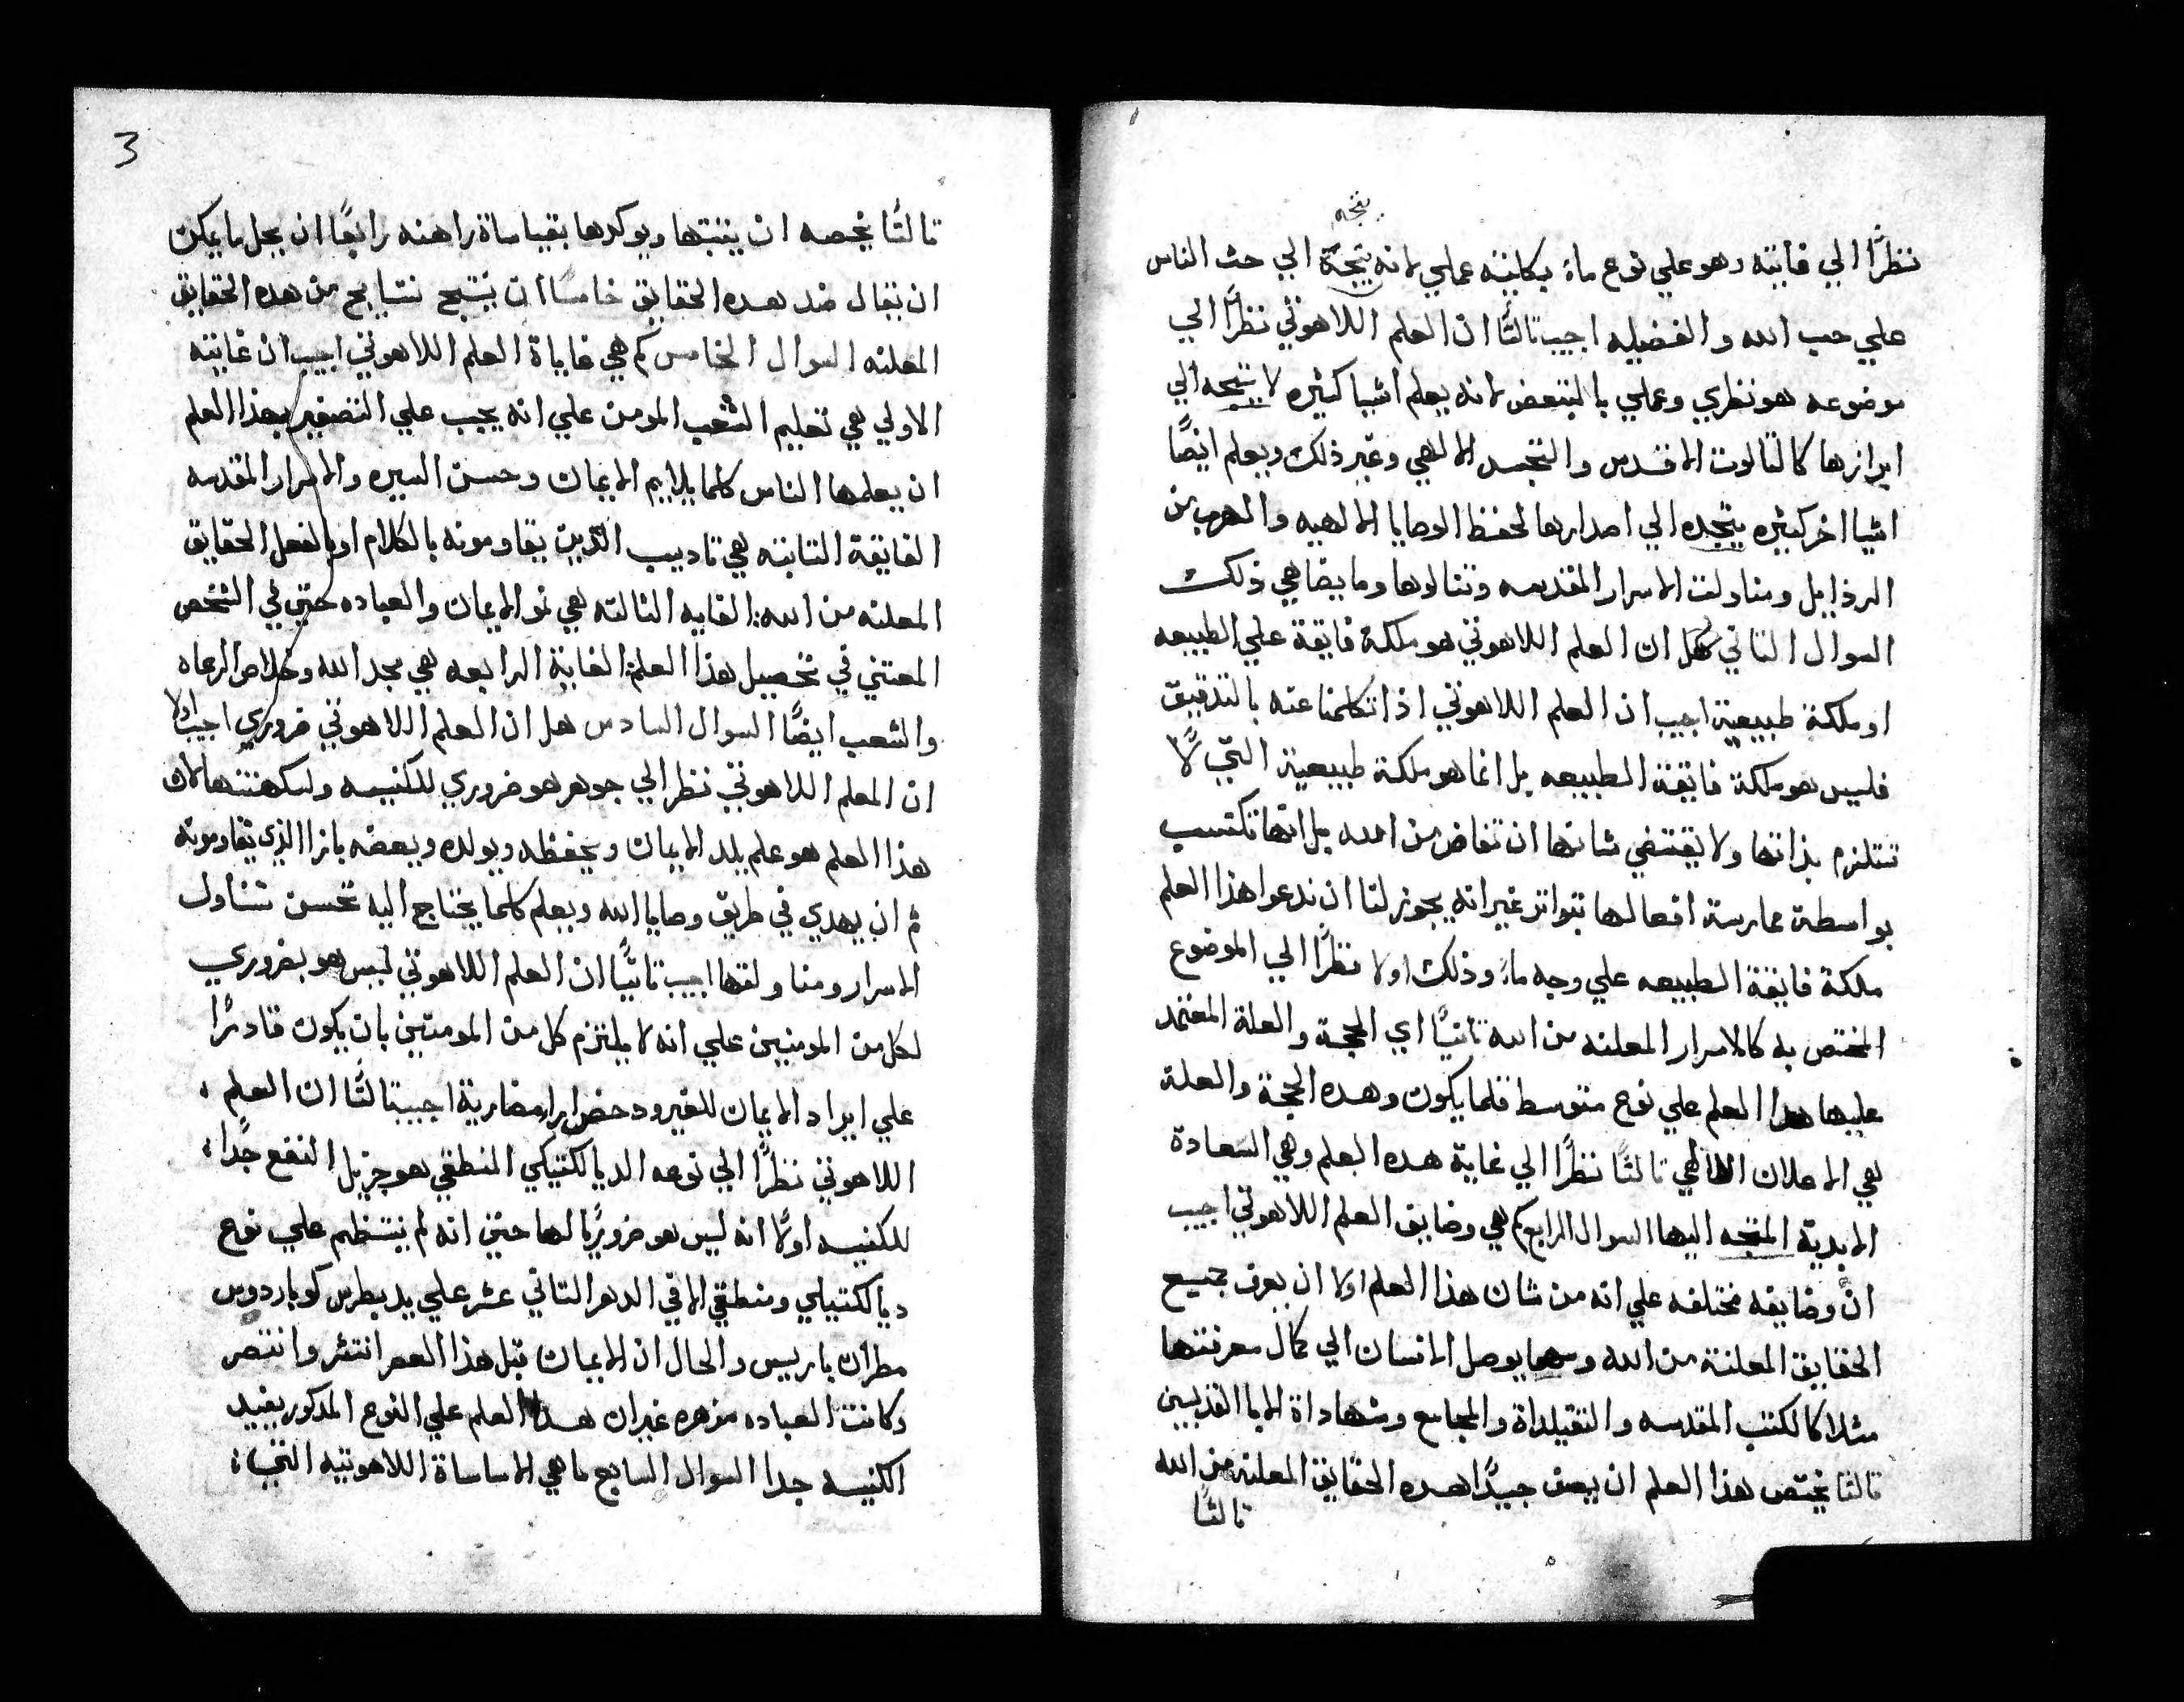 يتجه
نظرًا الي غايته وهو علي نوع ماءٍ بكليته عملي لانه يتجه الي حث الناس
علي حب الله والفضيله اجيب تالتًا ان العلم اللاهوتي نظرًا الي
موضوعه هو نظري وعملي بالبتعض لانه يعلم اشيا كثيره لا يتجه الي
ابرازها كالتالوت الاقدس والتجسد الالهي وغير ذلك ويعلم ايضًا
اشيا اخر كثيره يتجده الي اصدارها لحفظ الوصايا الالهيه والهرب من
الرذايل ومناولت الاسرار المقدسه وتناولها وما يضاهي ذلك
السوال التاني هل ان العلم اللاهوتي هو ملكة فايقة علي الطبيعه
او ملكة طبيعية اجيب ان العلم اللاهوتي اذا تكلمنا عنه بالتدقيق
فليس هو ملكة فايقة الطبيعه بل انما هو ملكة طبيعية التي لا
تتلزم بذاتها ولا يقتضي شانها ان تفاض من الله بل انها تكتسب
بواسطة ممارسة افعالها بتواتر غير انه يجوز لنا ان ندعوا هذا العلم
ملكة فايقة الطبيعه علي وجه ماءٍ وذلك اولا نظرًا الي الموضوع
المختص به كالاسرار المعلنه من الله تانيًا اي الحجة والعلة المعتمد
عليها هدا العلم علي نوع متوسط فلما يكون وهده الحجة والعلة
هي الاعلان الالهي تالتًا نظرًا الي غاية هده العلم وهي السعادة
الابدية المتجه اليها السوال الرابع كم هي وضايف العلم اللاهوتي اجيب
انَّ وضايفه مختلفه علي انه من شان هذا العلم اولا ان يعرف جميع
الحقايق المعلنة من الله ومهما يوصل الانسان الي كمال معرفتها
مثلا كالكتب المقدسه والتقيلداة والمجامع وشهاداة الابا القديسين
تالتا يختص هذا العلم ان يصف جيدًا هده الحقايق المعلنه من الله
تالتًا
3
تالتًا يخصه ان يتبتها ويوكدها بقياساة راهنه رابعًا ان يحل ما يمكن
ان يقال ضد هده الحقايق خامسًا ان ينتج نتايج من هده الحقايق
المعلنه السوال الخامس كم هي غاياة العلم اللاهوتي اجيب ان غايته
الاولي هي تعليم الشعب المومن علي انه يجب علي المتصفين بهذا العلم
ان يعلمها الناس كلما يلايم الايمان وحسن السيره والاسرار المقدسه
الغاية التانيه هي تاديب الذين يقاومونه بالكلام او بالفعل الحقايق
المعلنه من الله: الغايه التالته هي نو الايمان والعباده حتي في الشخص
المعتني في تحصيل هذا العلم: الغاية الرابعه هي مجد الله وخلاص الرعاه
والشعب ايضًا السوال السادس هل ان العلم اللاهوتي ضروري اجيب اولا
ان المعلم اللاهوتي نظر الي جوهر هو ضروري للكنيسه ولكهنتها لان
هذا العلم هو علم يلد الايمان ويحفظه ويولده ويعضه بازا الذي يقاومونه
ثم ان يهدي في طريق وصايا الله ويعلم كلما يحتاج اليه تحسن تناول
الاسرار ومناولتها اجيب تانيًا ان العلم اللاهوتي ليس هو بضروري
لكل من المومنين علي انه لا يلتزم كل من المومنين بان يكون قادرًا
علي ايراد الايمان للغير ودحض ايرار مضاربة اجيب تالتًا ان العلم
اللاهوتي نظرًا الي نوعه الديالكتيكي المنطقي هو جزيل النفع جدًا
للكنيسه اولًا انه ليس هو ضروريًا لها حتي انه لم ينتظم علي نوع
ديالكتيلي ومنطقي الا في الدهر التاني عشر علي يد بطرس كوباردوس
مطران باريس والحال ان الايمان قبل هذا العصر انتشر وانتصر
وكانت العباده مزهره غير ان هدا العلم علي النوع المدكور يفيد
الكنيسه جدا السوال السابع ما هي الاساساة اللاهوتيه التي: